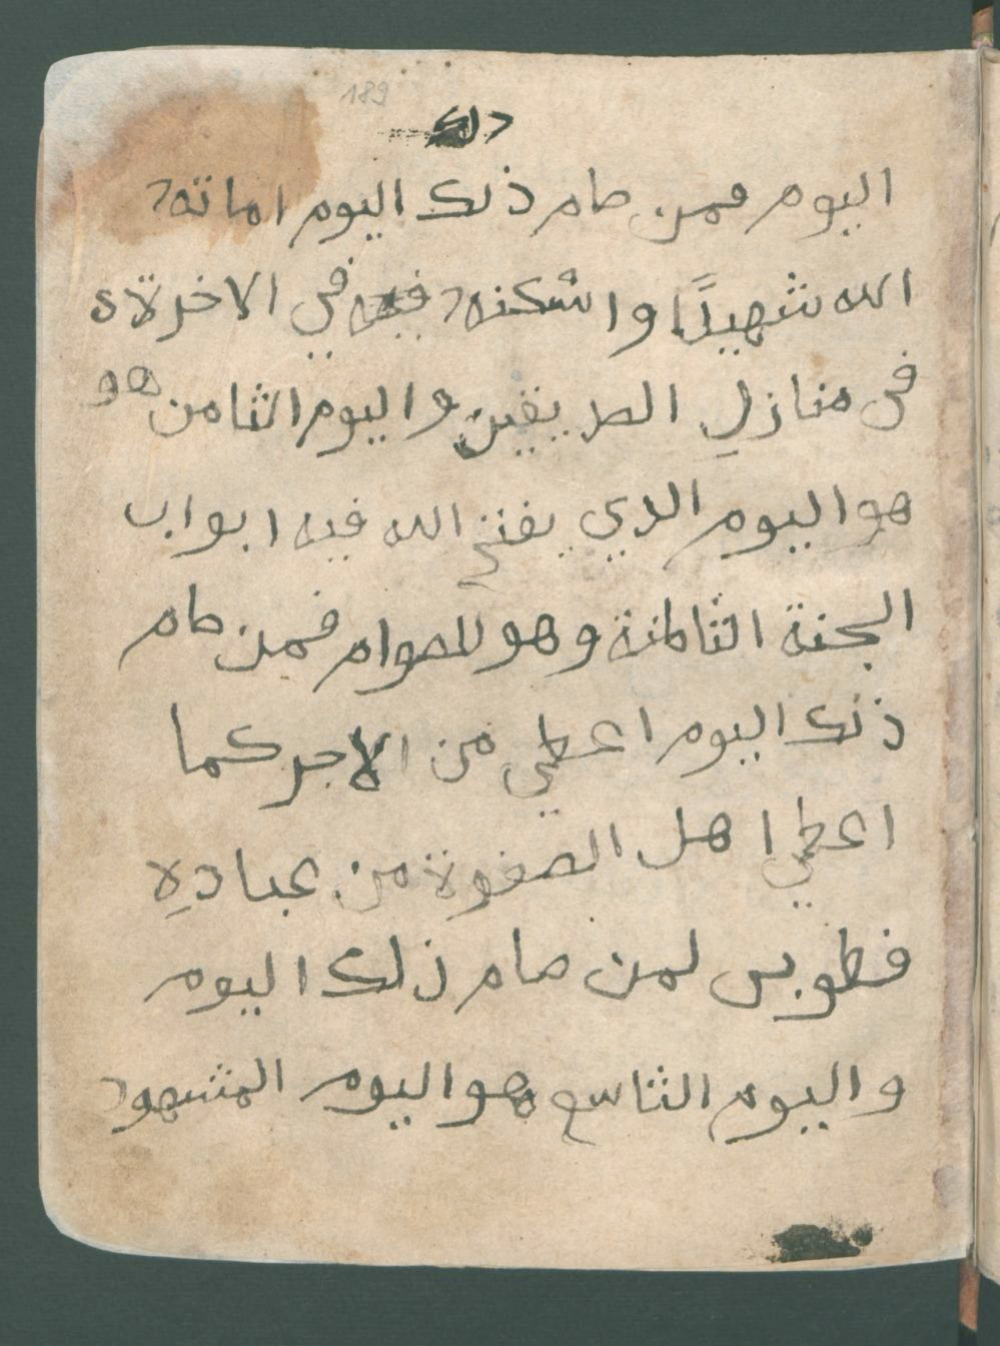 189
ذلك
اليوم فمن صام ذلك اليوم اماته
الله شهيدًا واشكنه فيه في الاخرلاة
في منازلِ الصديقين واليوم الثامن هو
هو اليوم الدي يفتح الله فيه ابواب
الجنة الثامنة وهو للصوام فمن صام
ذلك اليوم اعطي من الاجر كما
اعطي اهل الصفوة من عبادهِ
فطوبى لمن صام ذلك اليوم
واليوم التاسع هو اليوم المشهود